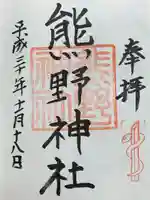 奉拝
熊野神社
平成三十年十一月十八日